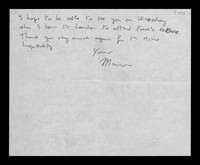 I hope to be able to see you on Wednesday
when I come to London to attend Ford's lecture.
Thank you very much again for the kind
hospitality.
Yours